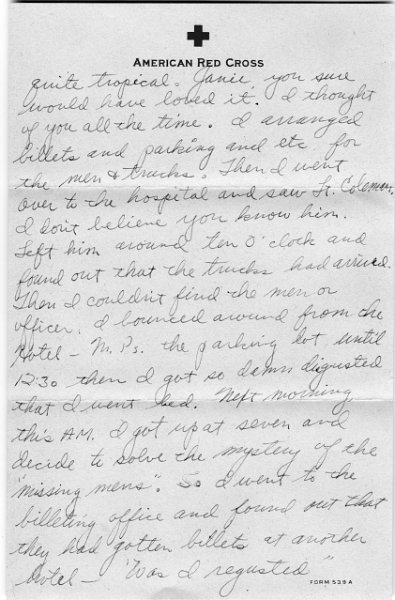 AMERICAN RED CROSS
quite tropical. Janie you sure
would have loved it. I thought
of you all the time. I arranged
billets and parking and etc for
the men & trucks. Then I went
over to the hospital and saw Lt. Coleman.
I don't believe you know him.
Left him around ten O'clock and
found out that the trucks had arrived.
Then I couldn't find the men or
officer. I bounced around from the
Hotel - M.Ps. the parking lot until
12:30 then I got so damn disgusted
that I went bed. Neft morning
this A.M. I got up at seven and
decide to solve the mystery of the
"missing mens". So I went to the
billeting office and found out that
they had gotten billets at another
hotel - "Was I regusted"
FORM 539A